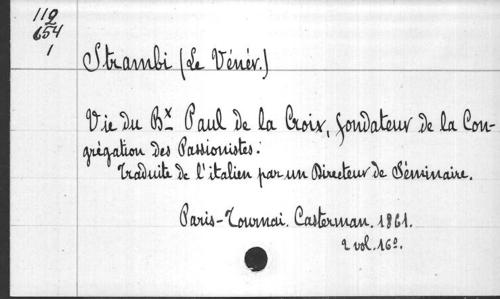 119
654
1
Strambi (Le Vénér.)
Vie du Bx Paul de la Croix, fondateur de la Con-
grégation des Passionistes.
Traduite de l'italien par un Directeur de Séminaire.
Paris-Tournai. Casterman. 1861.
2 vol. 16º.